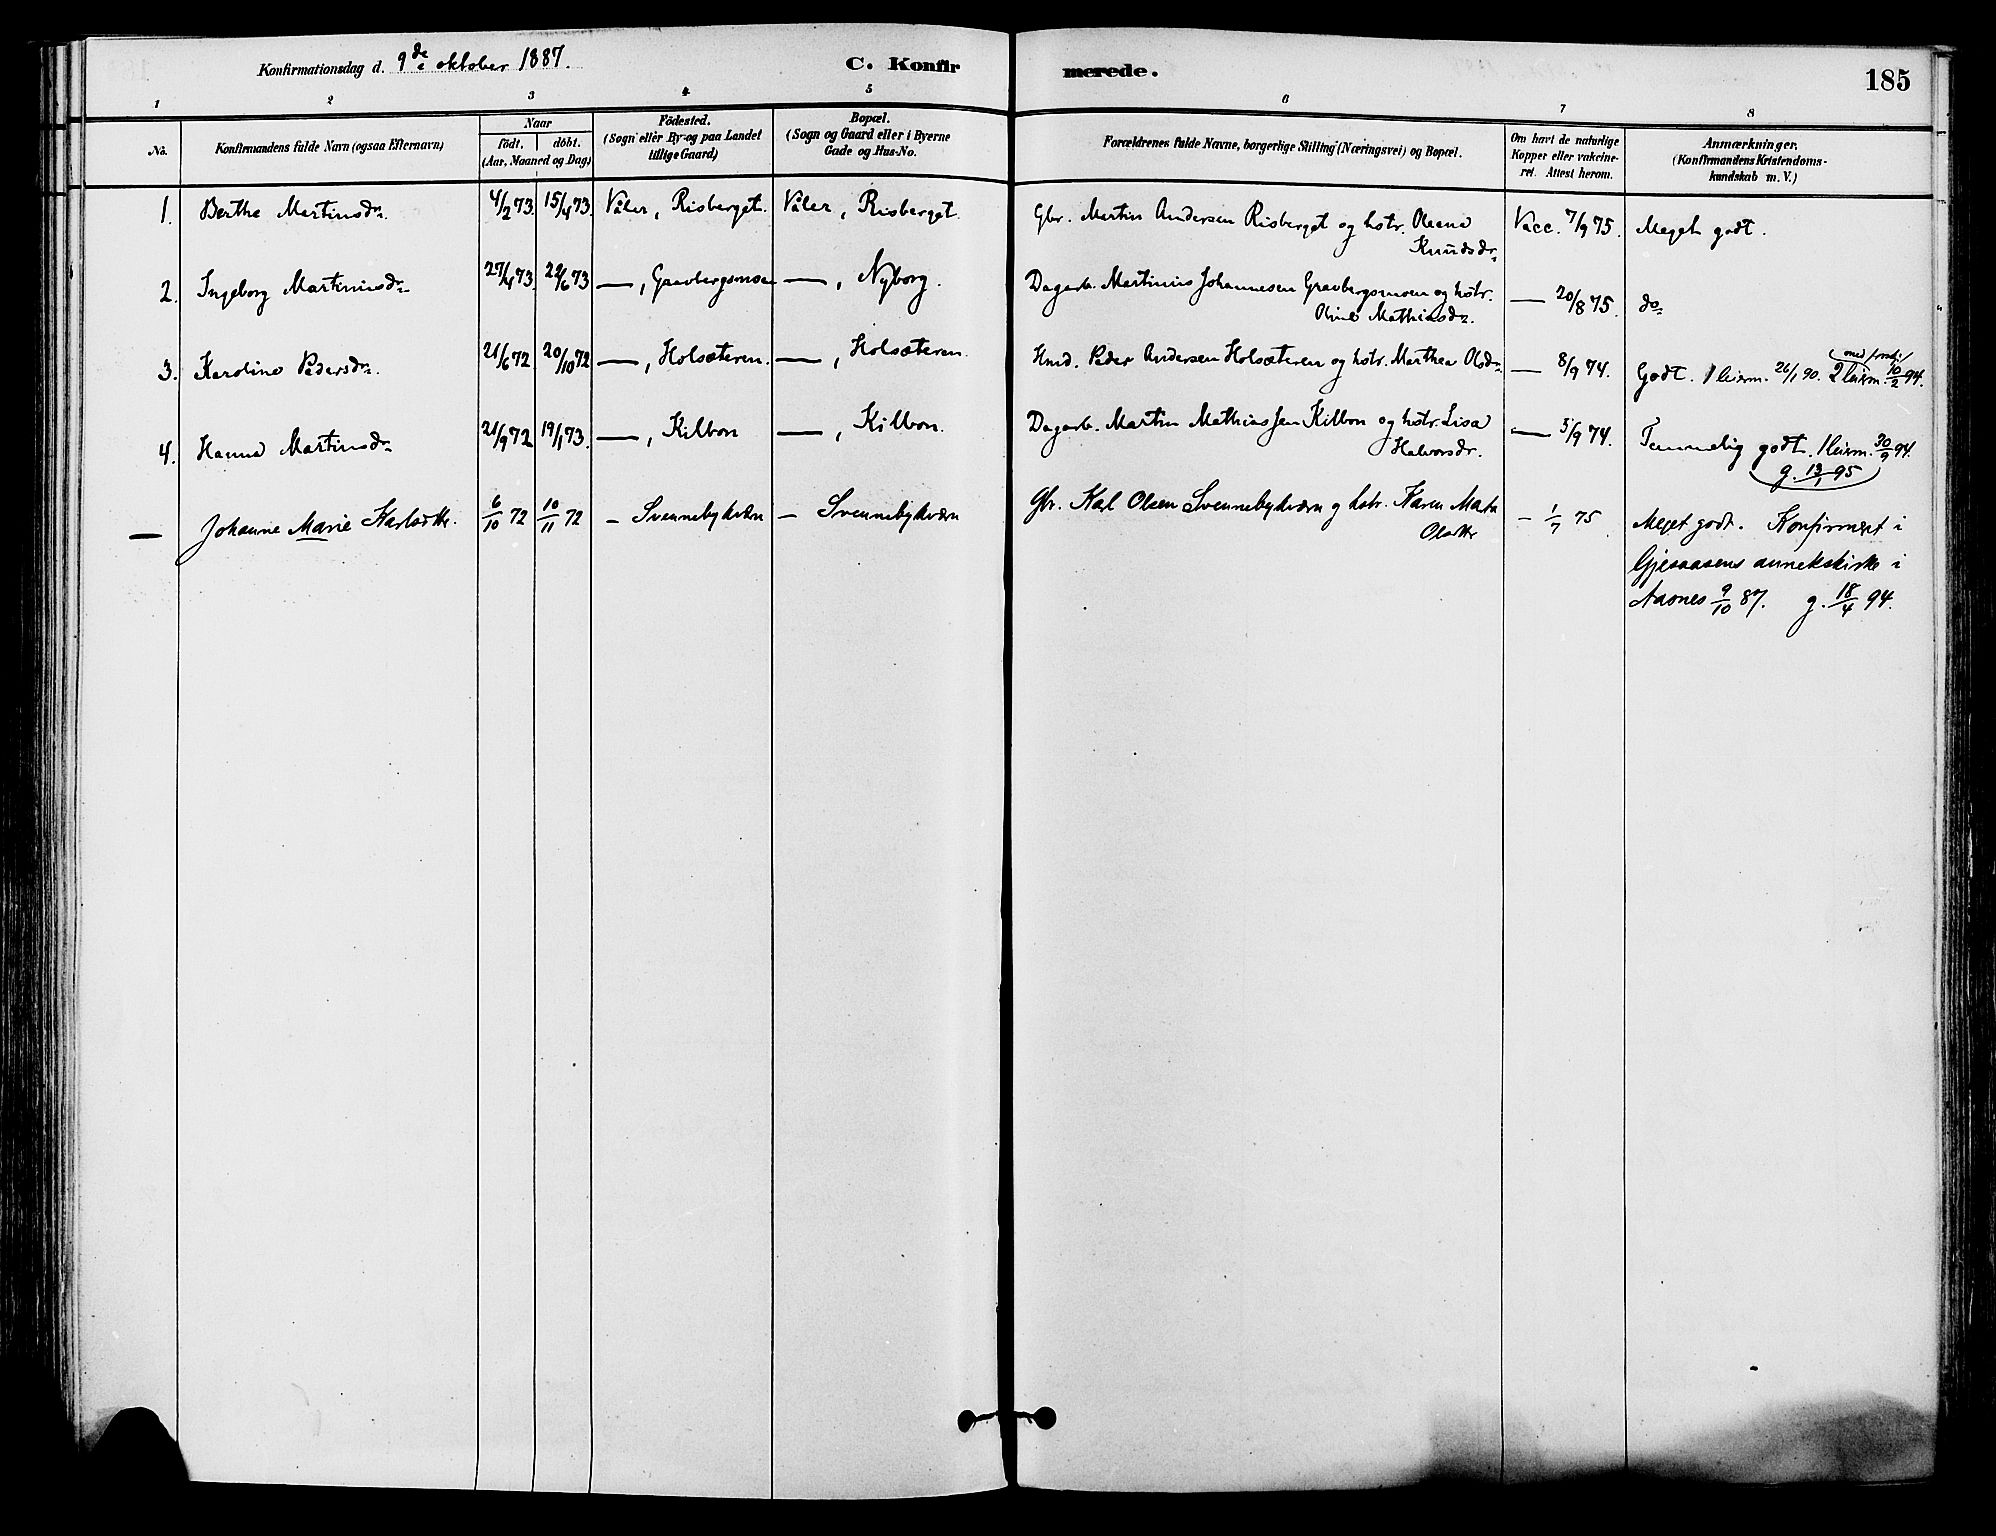 Konfirmationsdag d. 9de oktober 1887. C. Konfirmerede. 185
1 2 3 4 5 6 7 8
No. Konfirmandens fulde Navn (ogsaa Efternavn) Naar födt. döbt. (Aar, Maaned og Dag) Födested. (Sogn eller By og paa Landet tillige Gaard) Bopæl. (Sogn og Gaard eller i Byerne Gade og Hus-No. Forældrenes fulde Navne, borgerlige Stilling (Næringsvei) og Bopæl. Om havt de naturlige Kopper eller vakcineret. Attest herom. Anmærkninger. (Konfirmandens Kristendomskundskab m. V.)
1. Berthe Martinsdr. 4/2 73. 15/4 73. Våler, Risberget. Våler, Risberget. Gbr. Martin Andersen Risberget og hstr. Oleana Knudsdr. Vacc. 7/9 75. Meget godt.
2. Ingeborg Martinusdr. 27/4 73. 22/6 73 —, Gravbergsmoen —, Nyborg. Dagarb. Martinus Johannesen Gravbergsmoen og hstr. Oline Mathiasdr. — 20/8 75. do
3. Karoline Pedersdr. 21/6 72 20/10 72 —, Holsæteren. —, Holsæteren. Hmd. Peder Andersen Holsæteren og hstr. Marthea Olsdr. — 8/9 74. Godt. 1 leierm. 26/1 90. 2 leierm. 10/2 94.
4. Hanna Martinsdr. 21/9 72 19/1 73. —, Kilbon —, Kilbon. Dagarb. Martin Mathiassen Kilbon og hstr. Lisa Halvorsdr. — 5/9 74. Temmelig godt. 1 leierm. 30/9 94.
g. 13/1 95
— Johanne Marie Karlsdtr. 6/10 72 10/11 72 — Svennebykværn — Svennebykværn Gbr. Karl Olsen Svennebykværn og hstr. Karen Marta Olsdtr — 1/7 75. Meget godt. Konfirmert i
Gjesaasens annekskirke i
Aasnes 9/10 87. g. 18/4 94.